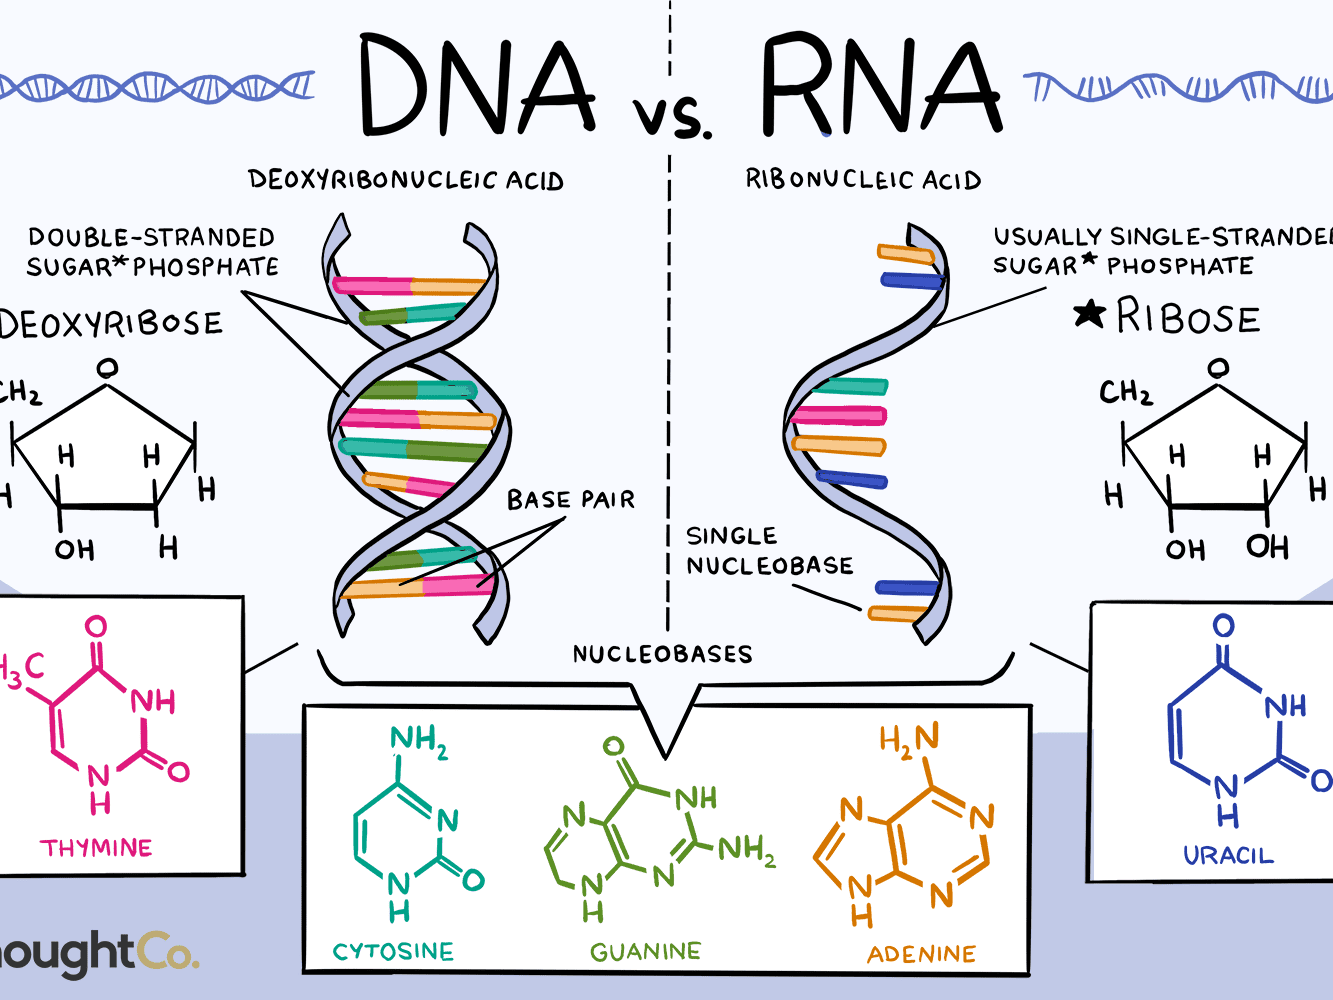 DNA vs. RNA
DEOXYRIBONUCLEIC ACID
RIBONUCLEIC ACID
DOUBLE-STRANDED
SUGAR* PHOSPHATE
DEOXYRIBOSE
CH2
O
H
H
H
H
OH
H
USUALLY SINGLE-STRANDED
SUGAR* PHOSPHATE
★ RIBOSE
CH2
O
H
H
H
H
OH
OH
BASE PAIR
SINGLE
NUCLEOBASE
NUCLEOBASES
H3C
O
NH
O
N
H
THYMINE
NH2
N
O
N
H
CYTOSINE
O
N
NH
NH2
N
N
H
GUANINE
H2N
N
N
N
N
H
ADENINE
O
NH
O
N
H
URACIL
houghtCo.